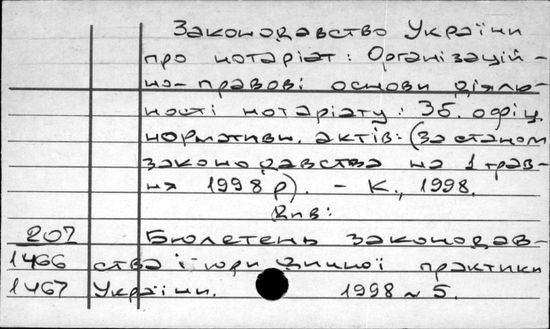 Законодавство України
про нотаріат: Організацій-
но-правові основи діяль-
ності нотаріату: Зб. офіц.
нормативн. актів: (За станом
законодавства на 1 трав-
ня 1998 р). - К., 1998.
Див:
207 Бюлетень законодав-
1466 ства і юри дичної практики
1467 України. 1998 ~ 5.